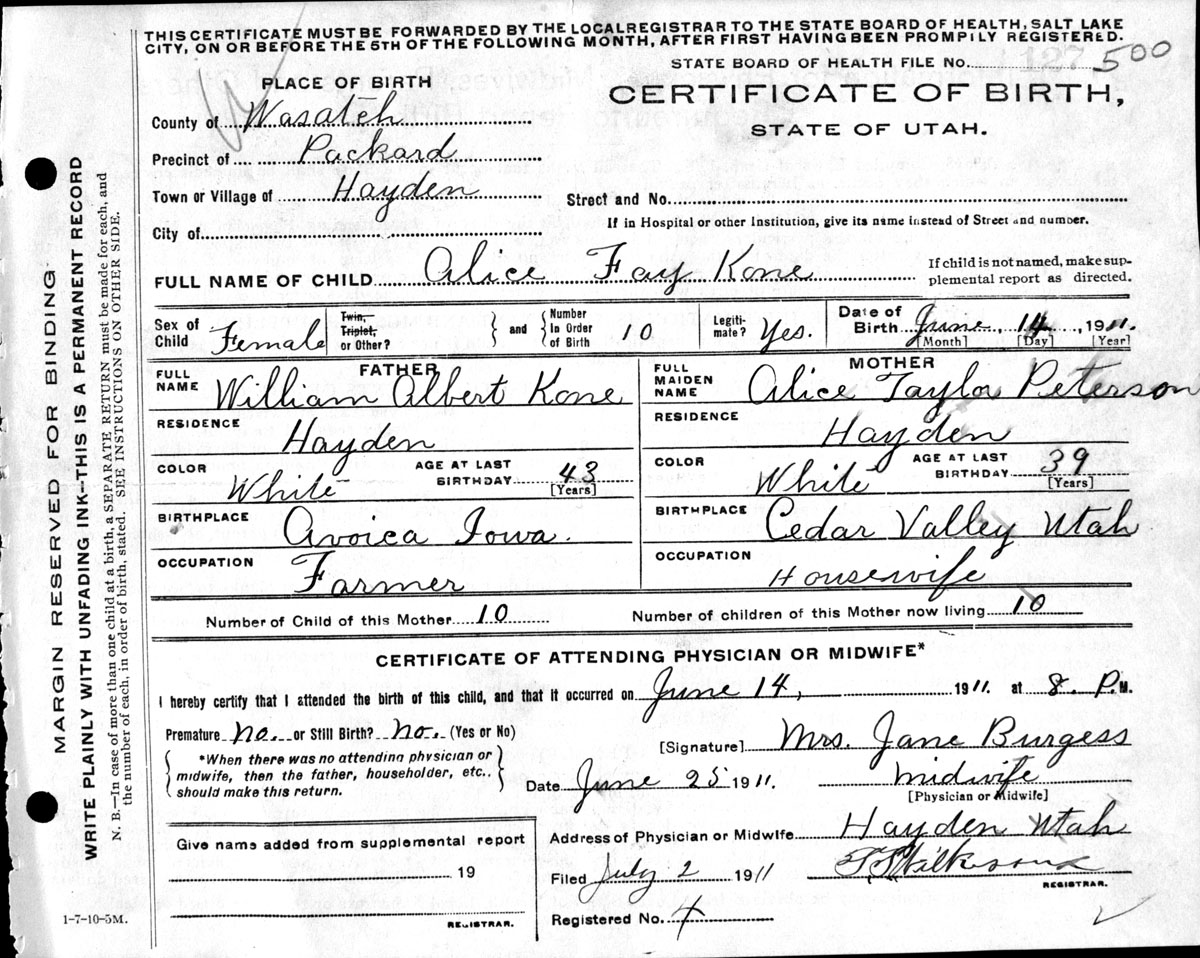 THIS CERTIFICATE MUST BE FORWARDED BY THE LOCALREGISTRAR TO THE STATE BOARD OF HEALTH, SALT LAKE
CITY, ON OR BEFORE THE 5TH OF THE FOLLOWING MONTH, AFTER FIRST HAVING BEEN PROMPILY REGISTERED.
STATE BOARD OF HEALTH FILE No. 127 500
PLACE OF BIRTH
CERTIFICATE OF BIRTH,
STATE OF UTAH.
County of Wasatch
Precinct of Packard
Town or Village of Hayden
Street and No.
City of
If in Hospital or other Institution, give its name instead of Street and number.
FULL NAME OF CHILD Alice Fay Kone
If child is not named, make sup-
plemental report as directed.
Sex of Child Female
Twin, Triplet, or Other?
and
Number In Order of Birth 10
Legiti-mate? Yes.
Date of Birth June, 14, 1911.
[Month] [Day] [Year]
FATHER
FULL NAME William Albert Kone
MOTHER
FULL MAIDEN NAME Alice Taylor Peterson
RESIDENCE Hayden
RESIDENCE Hayden
COLOR White
AGE AT LAST BIRTHDAY 43 [Years]
COLOR White
AGE AT LAST BIRTHDAY 39 [Years]
BIRTHPLACE Avoica Iowa.
BIRTHPLACE Cedar Valley Utah
OCCUPATION Farmer
OCCUPATION Housewife
Number of Child of this Mother 10
Number of children of this Mother now living 10
CERTIFICATE OF ATTENDING PHYSICIAN OR MIDWIFE*
I hereby certify that I attended the birth of this child, and that it occurred on June 14, 1911. at 8. P.M.
Premature No. or Still Birth? No. (Yes or No)
[Signature] Mrs. Jane Burgess
*When there was no attending physician or
midwife, then the father, householder, etc..
should make this return.
Date June 25 1911.
Midwife
[Physician or Midwife]
Give name added from supplemental report
19
REGISTRAR.
Address of Physician or Midwife Hayden Utah
Filed July 2 1911
REGISTRAR.
Registered No. 4
1-7-10-5M.
MARGIN RESERVED FOR BINDING
WRITE PLAINLY WITH UNFADING INK—THIS IS A PERMANENT RECORD
N. B.—In case of more than one child at a birth, a SEPARATE RETURN must be made for each, and
the number of each, in order of birth, stated. SEE INSTRUCTIONS ON OTHER SIDE.